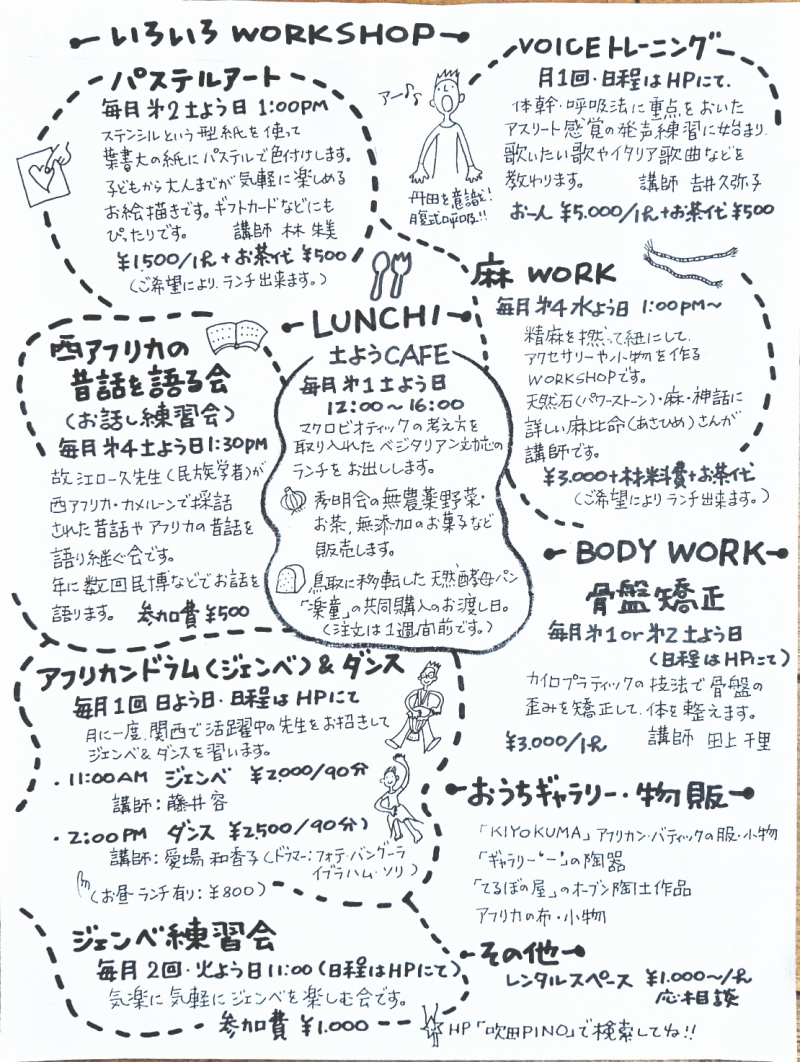 いろいろ WORKSHOP
パステルアート
毎月第2土よう日 1:00PM
ステンシルという型紙を使って
葉書大の紙にパステルで色付けします。
子どもから大人までが気軽に楽しめる
お絵描きです。ギフトカードなどにも
ぴったりです。 講師 林 朱美
¥1,500/1h + お茶代 ¥500
(ご希望により、ランチ出来ます。)
アー♪♪
丹田を意識!
腹式呼吸!!
VOICEトレーニング
月1回・日程はHPにて.
体幹・呼吸法に重点をおいた
アスリート感覚の発声練習に始まり、
歌いたい歌やイタリア歌曲などを
教わります。 講師 吉井久弥子
お一人 ¥5.000/1h+お茶代 ¥500
麻 WORK
毎月第4水よう日 1:00PM〜
精麻を撚って紐にして、
アクセサリーや小物を作る
WORKSHOPです。
天然石(パワーストーン)・麻・神話に
詳しい麻比命(あさひめ)さんが
講師です。
¥3.000+材料費+お茶代
(ご希望によりランチ出来ます。)
西アフリカの
昔話を語る会
(お話し練習会)
毎月第4土よう日1:30PM
故江口一久先生(民族学者)が
西アフリカ・カメルーンで採話
された昔話やアフリカの昔話を
語り継ぐ会です。
年に数回民博などでお話を
語ります。 参加費 ¥500
LUNCH
土ようCAFE
毎月第1土よう日
12:00〜16:00
マクロビオティックの考え方を
取り入れたベジタリアン対応の
ランチをお出しします。
秀明会の無農薬野菜・
お茶、無添加のお菓子など
販売します。
鳥取に移転した天然酵母パン
「楽童」の共同購入のお渡し日。
(注文は1週間前です。)
BODY WORK
骨盤矯正
毎月第1or第2土よう日
(日程はHPにて)
カイロプラティックの技法で骨盤の
歪みを矯正して、体を整えます。
¥3.000/1h 講師 田上千里
アフリカンドラム(ジェンベ)&ダンス
毎月1回 日よう日・日程はHPにて
月に一度、関西で活躍中の先生をお招きして
ジェンベ&ダンスを習います。
・11:00AM ジェンベ ¥2,000/90分
講師:藤井容
・2:00PM ダンス ¥2,500/90分)
講師:愛場和香子(ドラマー:フォデ・バングーラ
イブラハム・ソリ)
(お昼ランチ有り:¥800)
おうちギャラリー・物販
「KIYOKUMA」アフリカン・バティックの服・小物
の陶器
「てるぼの屋」のオーブン陶土作品
アフリカの布・小物
ジェンベ練習会
毎月2回・火よう日11:00(日程はHPにて)
気楽に気軽にジェンベを楽しむ会です。
参加費 ¥1.000
その他
レンタルスペース ¥1.000〜/h
応相談
HP「吹田PINO」で検索してね!!